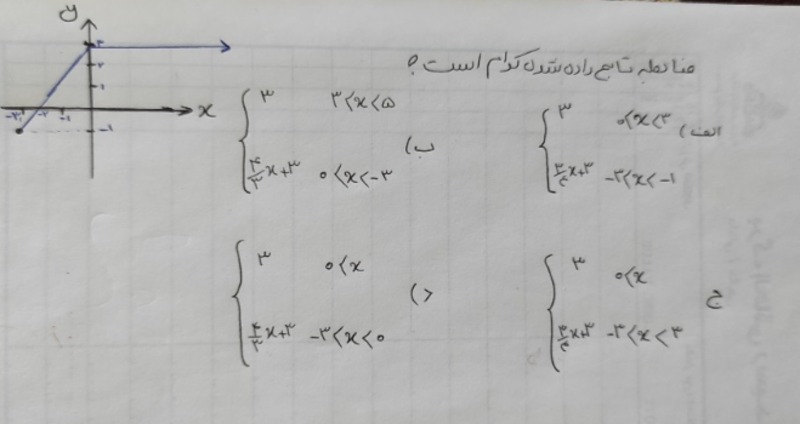 ضابطه تابع داده شده کدام است؟
y
۳
۲
۱
-۳ -۲ -۱
x
-۱
الف)
۳ ۰<x<۳
۳/۴x+۳ -۳<x<-۱
ب)
۳ ۳<x<۵
۴/۳x+۳ ۰<x<-۳
ج
۳ ۰<x
۳/۴x+۳ -۳<x<۳
د)
۳ ۰<x
۴/۳x+۳ -۳<x<۰